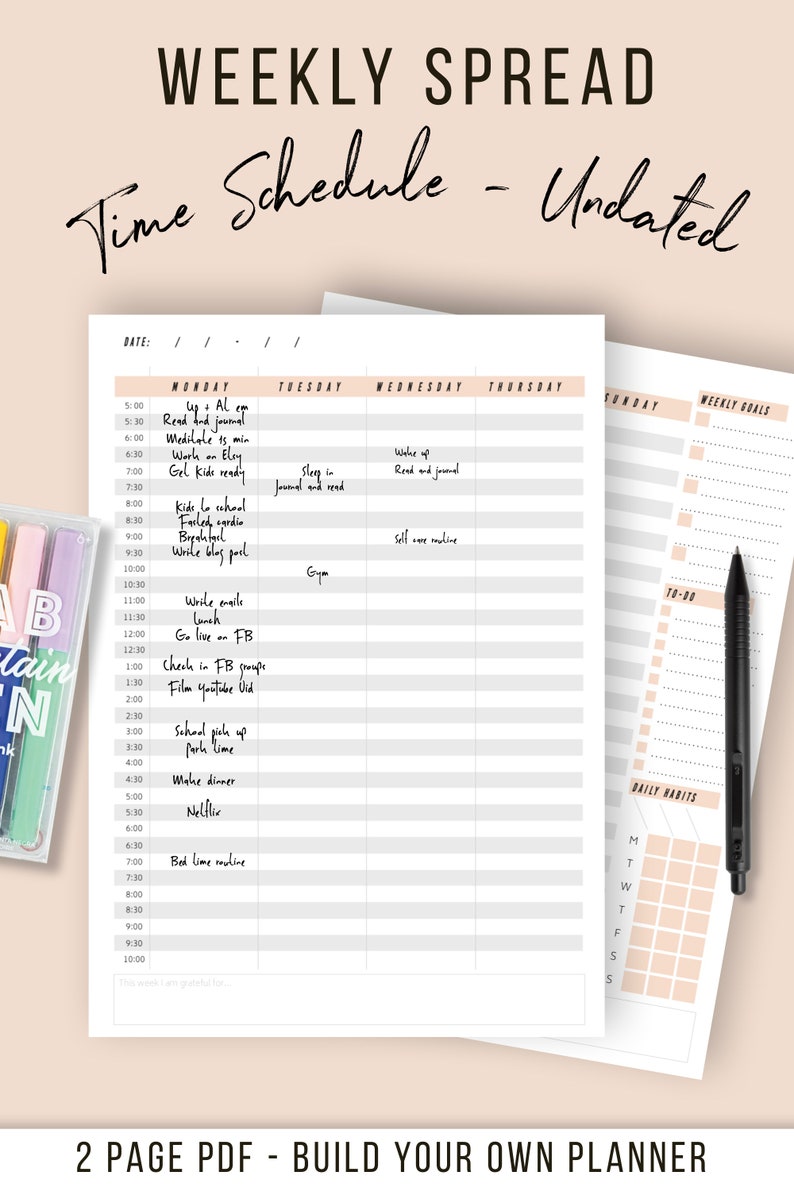 WEEKLY SPREAD
Time Schedule - Undated
DATE: / / - / /
MONDAY TUESDAY WEDNESDAY THURSDAY
5:00 Up + At em
5:30 Read and journal
6:00 Meditate 15 min
6:30 Work on Etsy Wake up
7:00 Get Kids ready Sleep in Read and journal
7:30 Journal and read
8:00 Kids to school
8:30 Fasted cardio
9:00 Breakfast Self care routine
9:30 Write blog post
10:00 Gym
10:30
11:00 Write emails
11:30 Lunch
12:00 Go live on FB
12:30
1:00 Check in FB groups
1:30 Film Youtube Vid
2:00
2:30
3:00 School pick up
3:30 Park time
4:00
4:30 Make dinner
5:00
5:30 Netflix
6:00
6:30
7:00 Bed time routine
7:30
8:00
8:30
9:00
9:30
10:00
This week I am grateful for...
SUNDAY
WEEKLY GOALS
TO-DO
DAILY HABITS
M
T
W
T
F
S
S
6+
2 PAGE PDF - BUILD YOUR OWN PLANNER